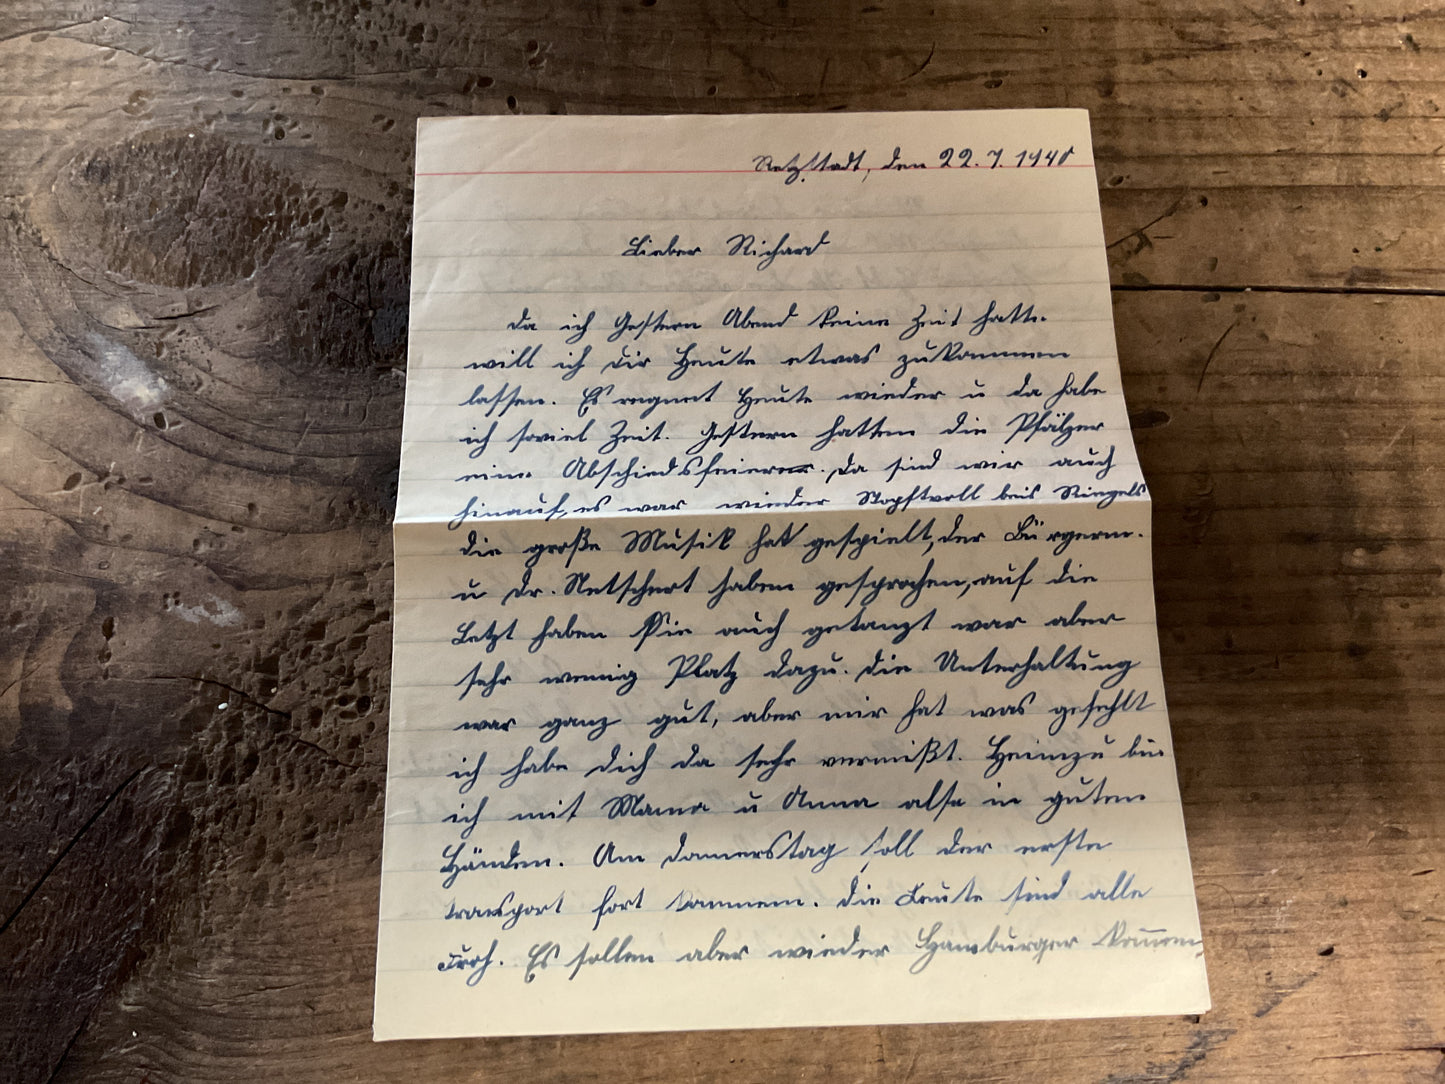 Retzstadt, den 22. 7. 1940
Lieber Richard
Da ich Gestern Abend keine Zeit hatte.
will ich Dir Heute etwas zukommen
lassen. Es regnet Heute wieder u da habe
ich soviel Zeit. Gestern hatten die Pfälzer
eine Abschiedsfeierer. Da sind wir auch
hinauf, es war wieder Stopftvoll beis Ringels
die große Musik hat gespielt, der Bürgerm.
u Dr. Netschert haben gesprochen, auf die
Letzt haben Sie auch getanzt war aber
sehr wenig Platz dazu. Die Unterhaltung
war ganz gut, aber mir hat was gefehlt
ich habe dich da sehr vermißt. Heimzu bin
ich mit Mama u Anna also in guten
Händen. Am Donnerstag soll der erste
transport fort kommen. Die Leute sind alle
Froh. Es sollen aber wieder Hamburger kommen.